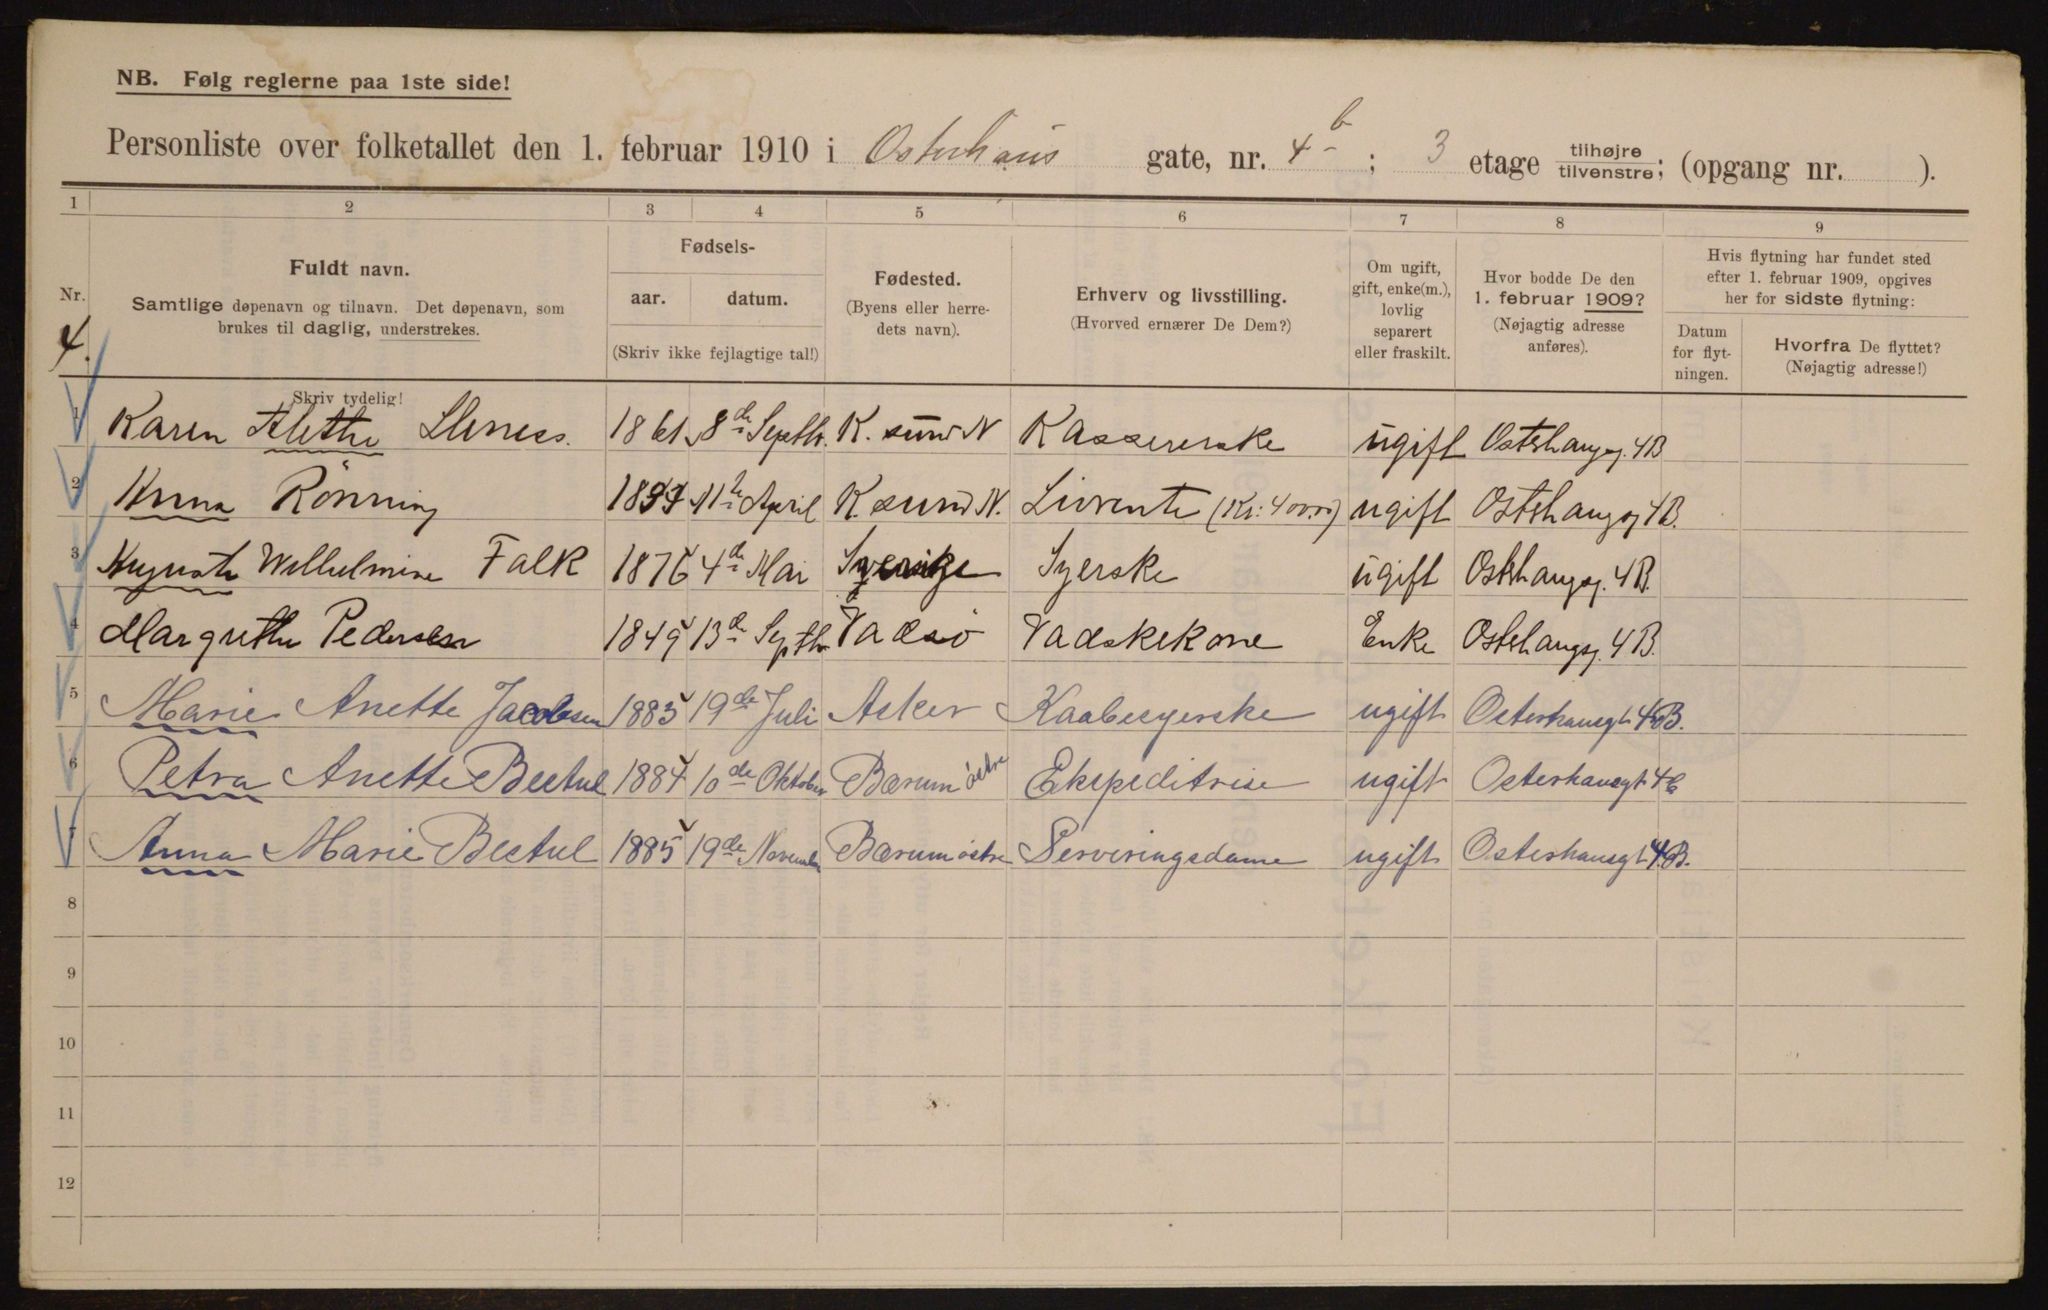 NB. Følg reglerne paa 1ste side!
Personliste over folketallet den 1. februar 1910 i Osterhaus gate, nr. 4 b; 3 etage tilhøjre tilvenstre; (opgang nr. ).
1 2 3 4 5 6 7 8 9
Nr.
4.
Fuldt navn.
Samtlige døpenavn og tilnavn. Det døpenavn, som
brukes til daglig, understrekes.
Fødsels-
aar. datum.
(Skriv ikke fejlagtige tal!)
Fødested.
(Byens eller herre-
dets navn).
Erhverv og livsstilling.
(Hvorved ernærer De Dem?)
Om ugift,
gift, enke(m.),
lovlig
separert
eller fraskilt.
Hvor bodde De den
1. februar 1909?
(Nøjagtig adresse
anføres).
Hvis flytning har fundet sted
efter 1. februar 1909, opgives
her for sidste flytning:
Datum
for flyt-
ningen.
Hvorfra De flyttet?
(Nøjagtig adresse!)
Skriv tydelig!
1 Karen Alethe 1861 8de Septbr. K. sund N Kassererske ugift Osterhausg. 4B
2 Anna Rönning 11te April K. sund N. Livrente ugift Osterhausg 4B.
3 Auguste Wilhelmine Falk 1876 4de Mai Sverige Syerske ugift Osterhausg. 4B.
4 Margrethe Pedersen 1849 13de Septbr Vadsö Vadskekone Enke Osterhausg. 4B.
5 Marie Anette Jacobsen 1883 19de Juli Asker Kaabesyerske ugift Osterhausgt 4B.
6 Petra Anette Bectul 1884 10de Oktober Bærum östre Ekspeditrise ugift Osterhausgt 4B
7 Anna Marie Bectul 1885 19de November Bærum östre Serveringsdame ugift Osterhausgt 4B.
8
9
10
11
12